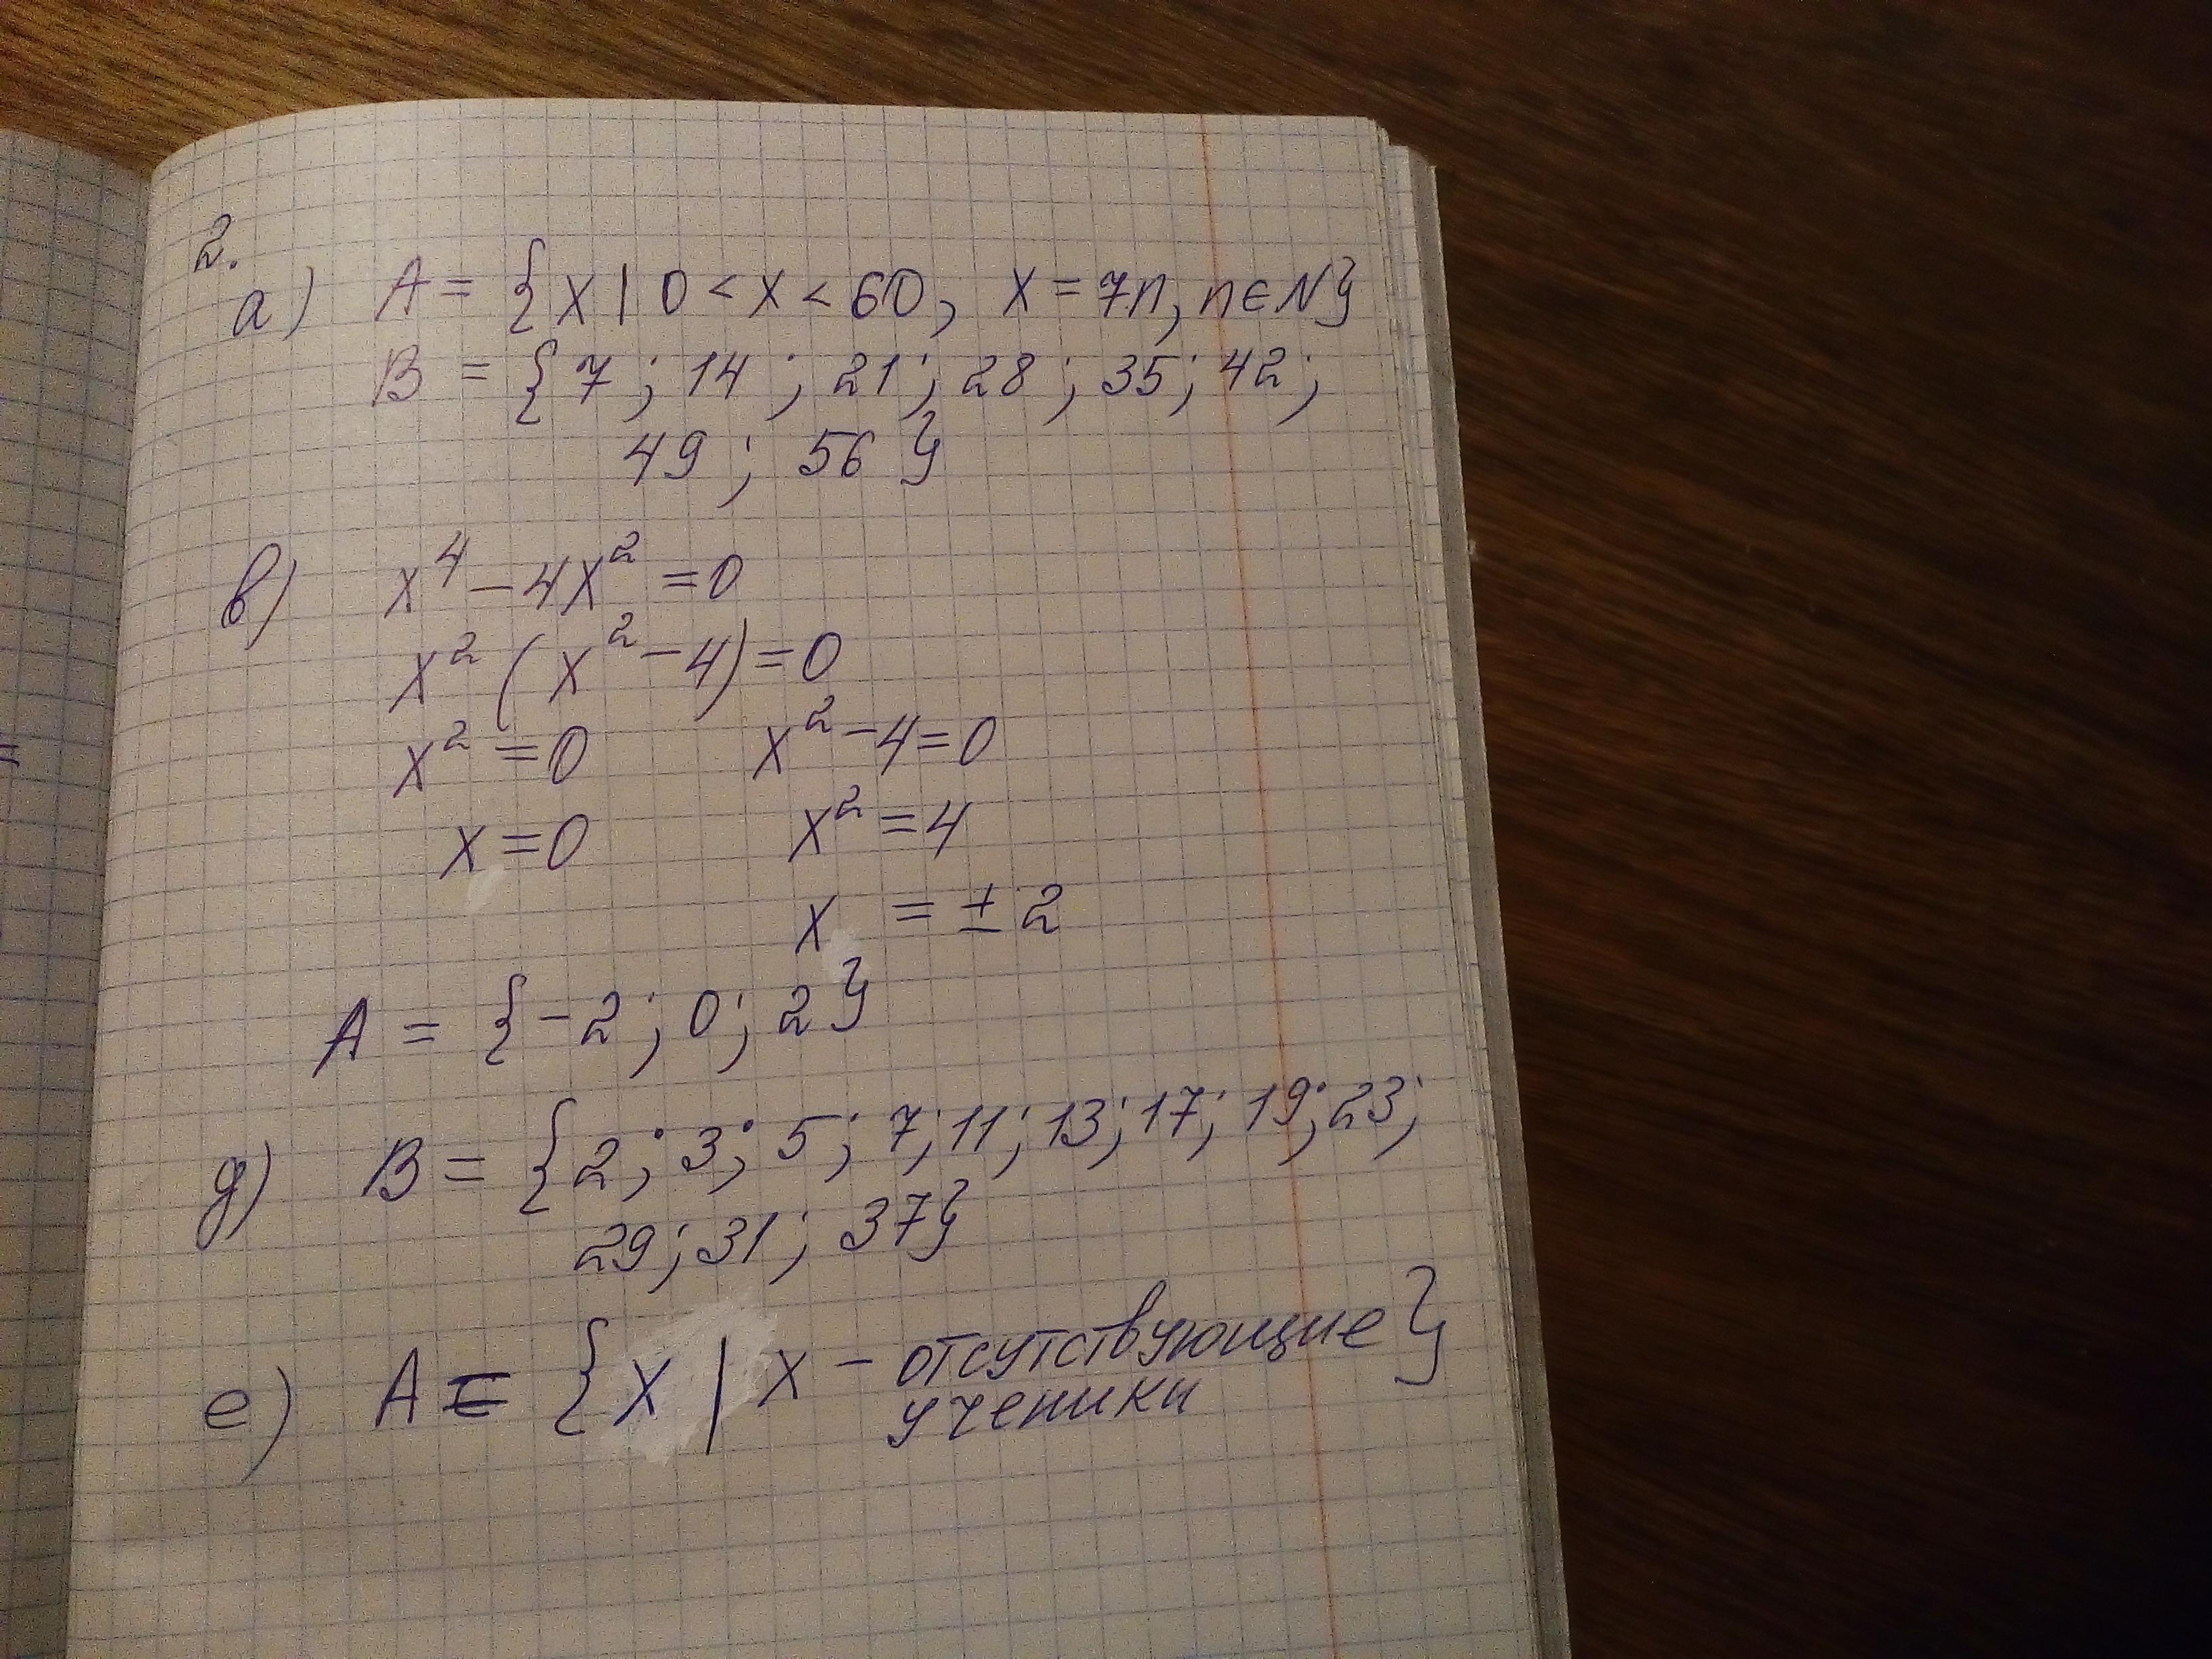 2.
а) A = {x | 0 < x < 60, x = 7n, n ∈ N}
B = {7; 14; 21; 28; 35; 42;
49; 56}
в) x⁴ - 4x² = 0
x² (x² - 4) = 0
x² = 0 x² - 4 = 0
x = 0 x² = 4
x = ± 2
A = {-2; 0; 2}
д) B = {2; 3; 5; 7; 11; 13; 17; 19; 23;
29; 31; 37}
е) A = {x | x - отсутствующие
ученики}
=